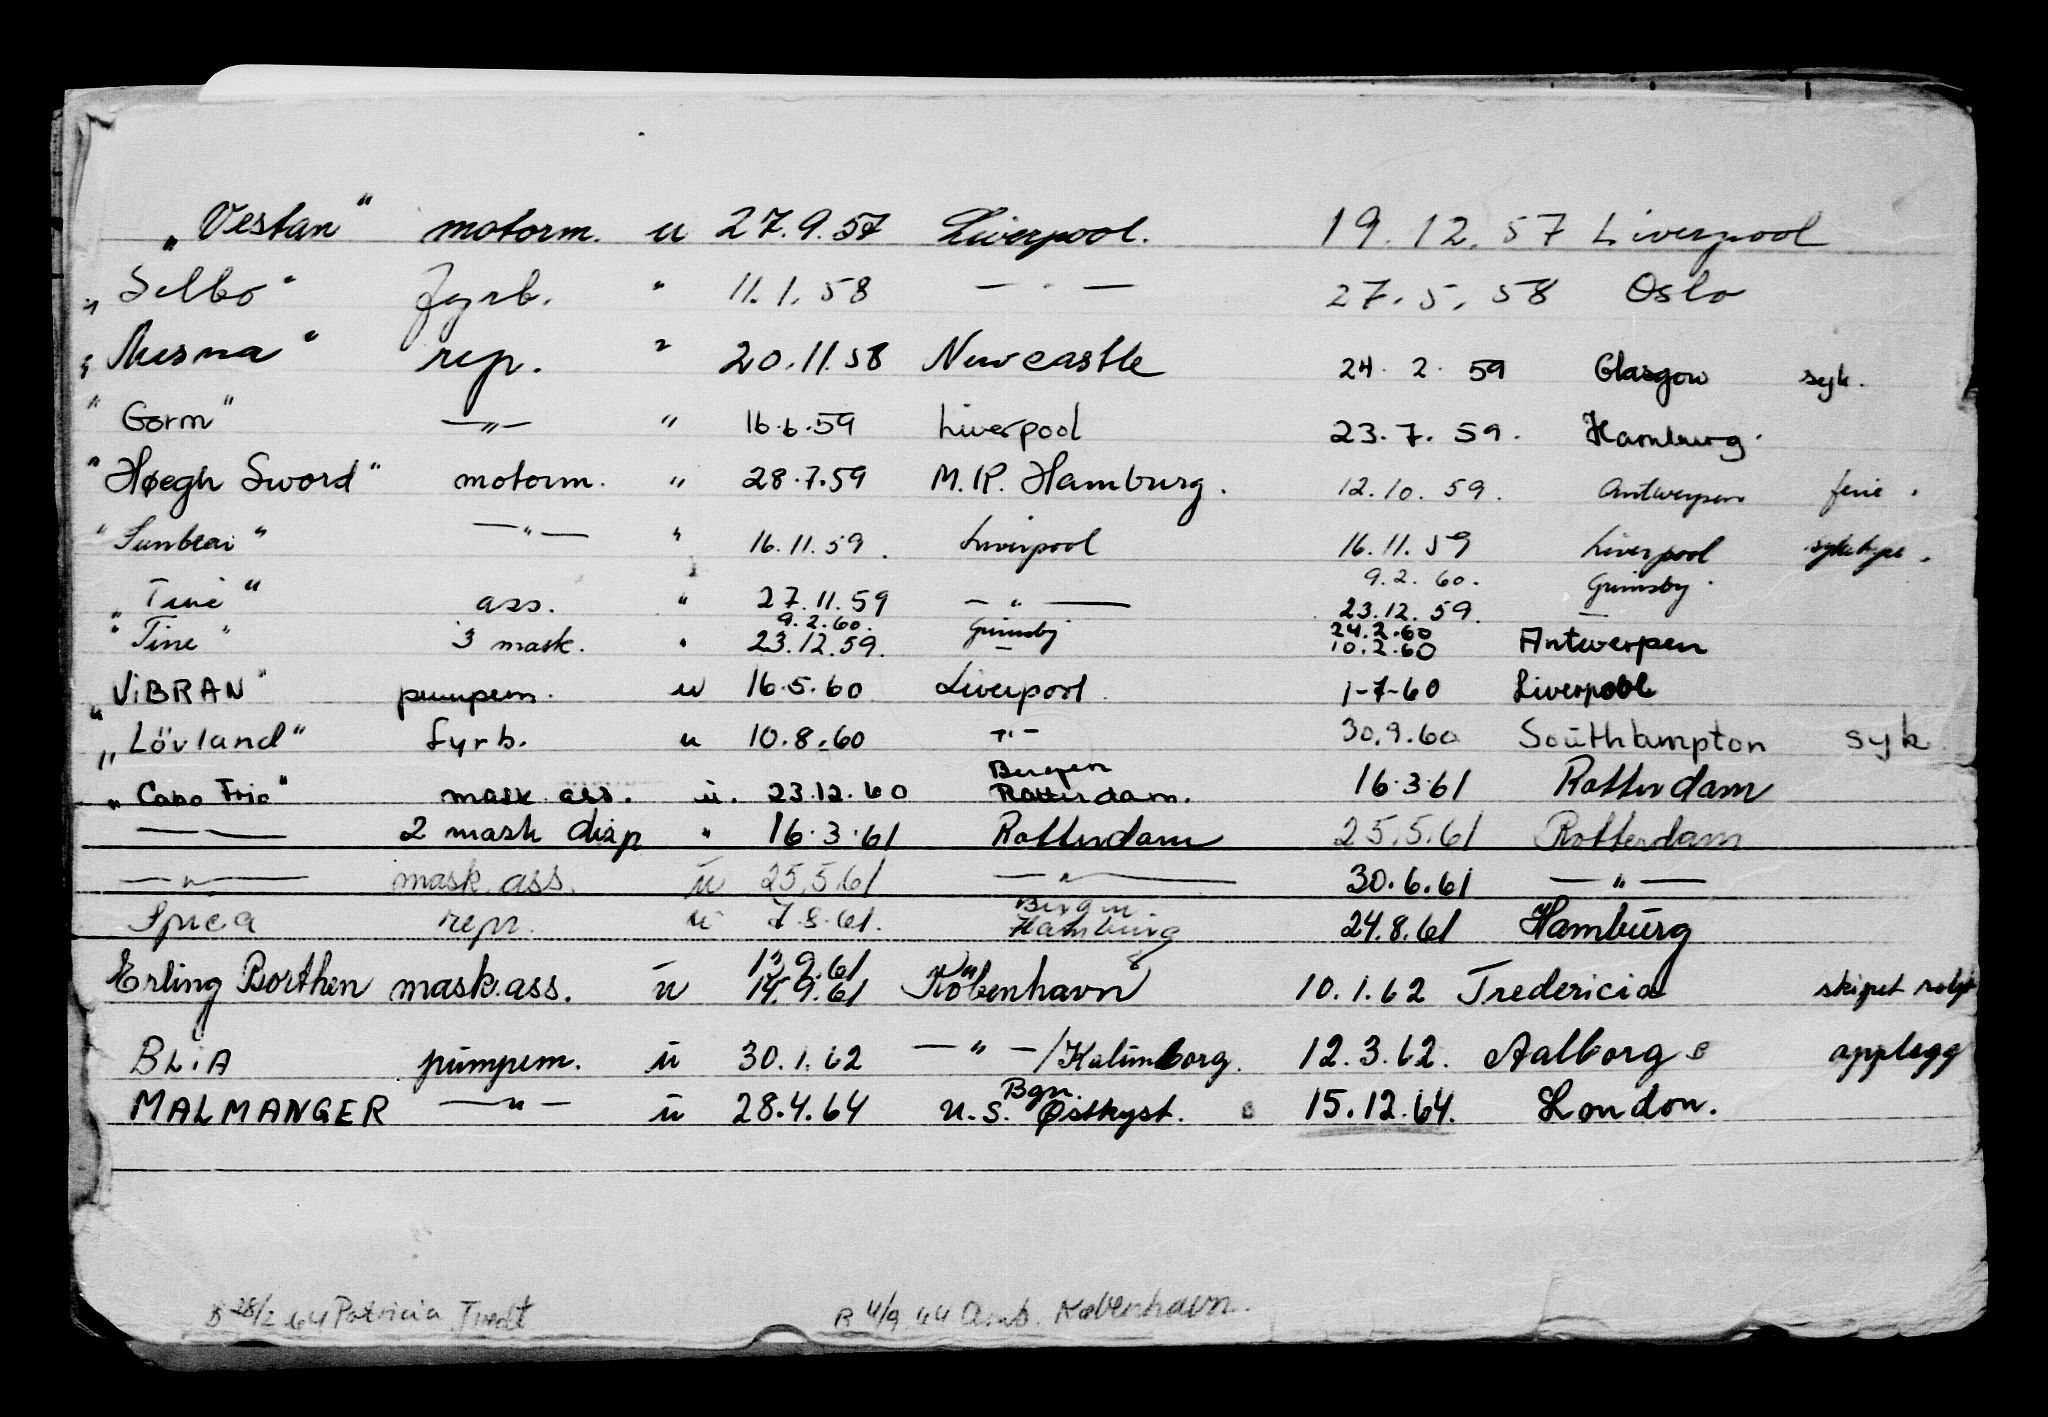 „Vestan" motorm. u 27.9.57 Liverpool. 19.12.57 Liverpool
„Selbo" fyrb. " 11.1.58 — " — 27.5.58 Oslo
„Mesna" rep. " 20.11.58 Newcastle 24.2.59 Glasgow syk.
"Gorm" —"— " 16.6.59 Liverpool 23.7.59. Hamburg.
"Høegh Sword" motorm. " 28.7.59 M.R. Hamburg. 12.10.59. Antwerpen ferie.
—"— " 16.11.59. Liverpool 16.11.59 Liverpool
9.2.60. Grimsby.
„Tine" ass. " 27.11.59 —"— 23.12.59. —
9.2.60. Grimsby 24.2.60
"Tine" 3 mask. " 23.12.59. — 10.2.60 Antwerpen
„ViBRAN" pumpem. u 16.5.60 Liverpool. 1-7-60 Liverpool
„Lövland" fyrb. u 10.8.60 -"- 30.9.60 Southhampton syk.
Bergen
„Cabo Frio" mask ass. ü. 23.12.60 Rotterdam. 16.3.61 Rotterdam
—— 2 mask disp " 16.3.61 Rotterdam 25.5.61 Rotterdam
—"— mask.ass. ü 25.5.61 —"— 30.6.61 —"—
Bergen.
Spica repr. ü 7.8.61. Hamburg 24.8.61 Hamburg
9.61
Erling Borthen mask.ass. ü 14.9.61 København 10.1.62 Fredericia skipet solgt
BLiA pümpem. ü 30.1.62 —"—/Kalündborg. 12.3.62. Aalborg B opplegg
Bgn.
MALMANGER —"— ü 28.4.64 U.S. Østkyst. B 15.12.64. London.
B 28/2 64 Patricia Tvedt B 4/9 64 Amb. København.